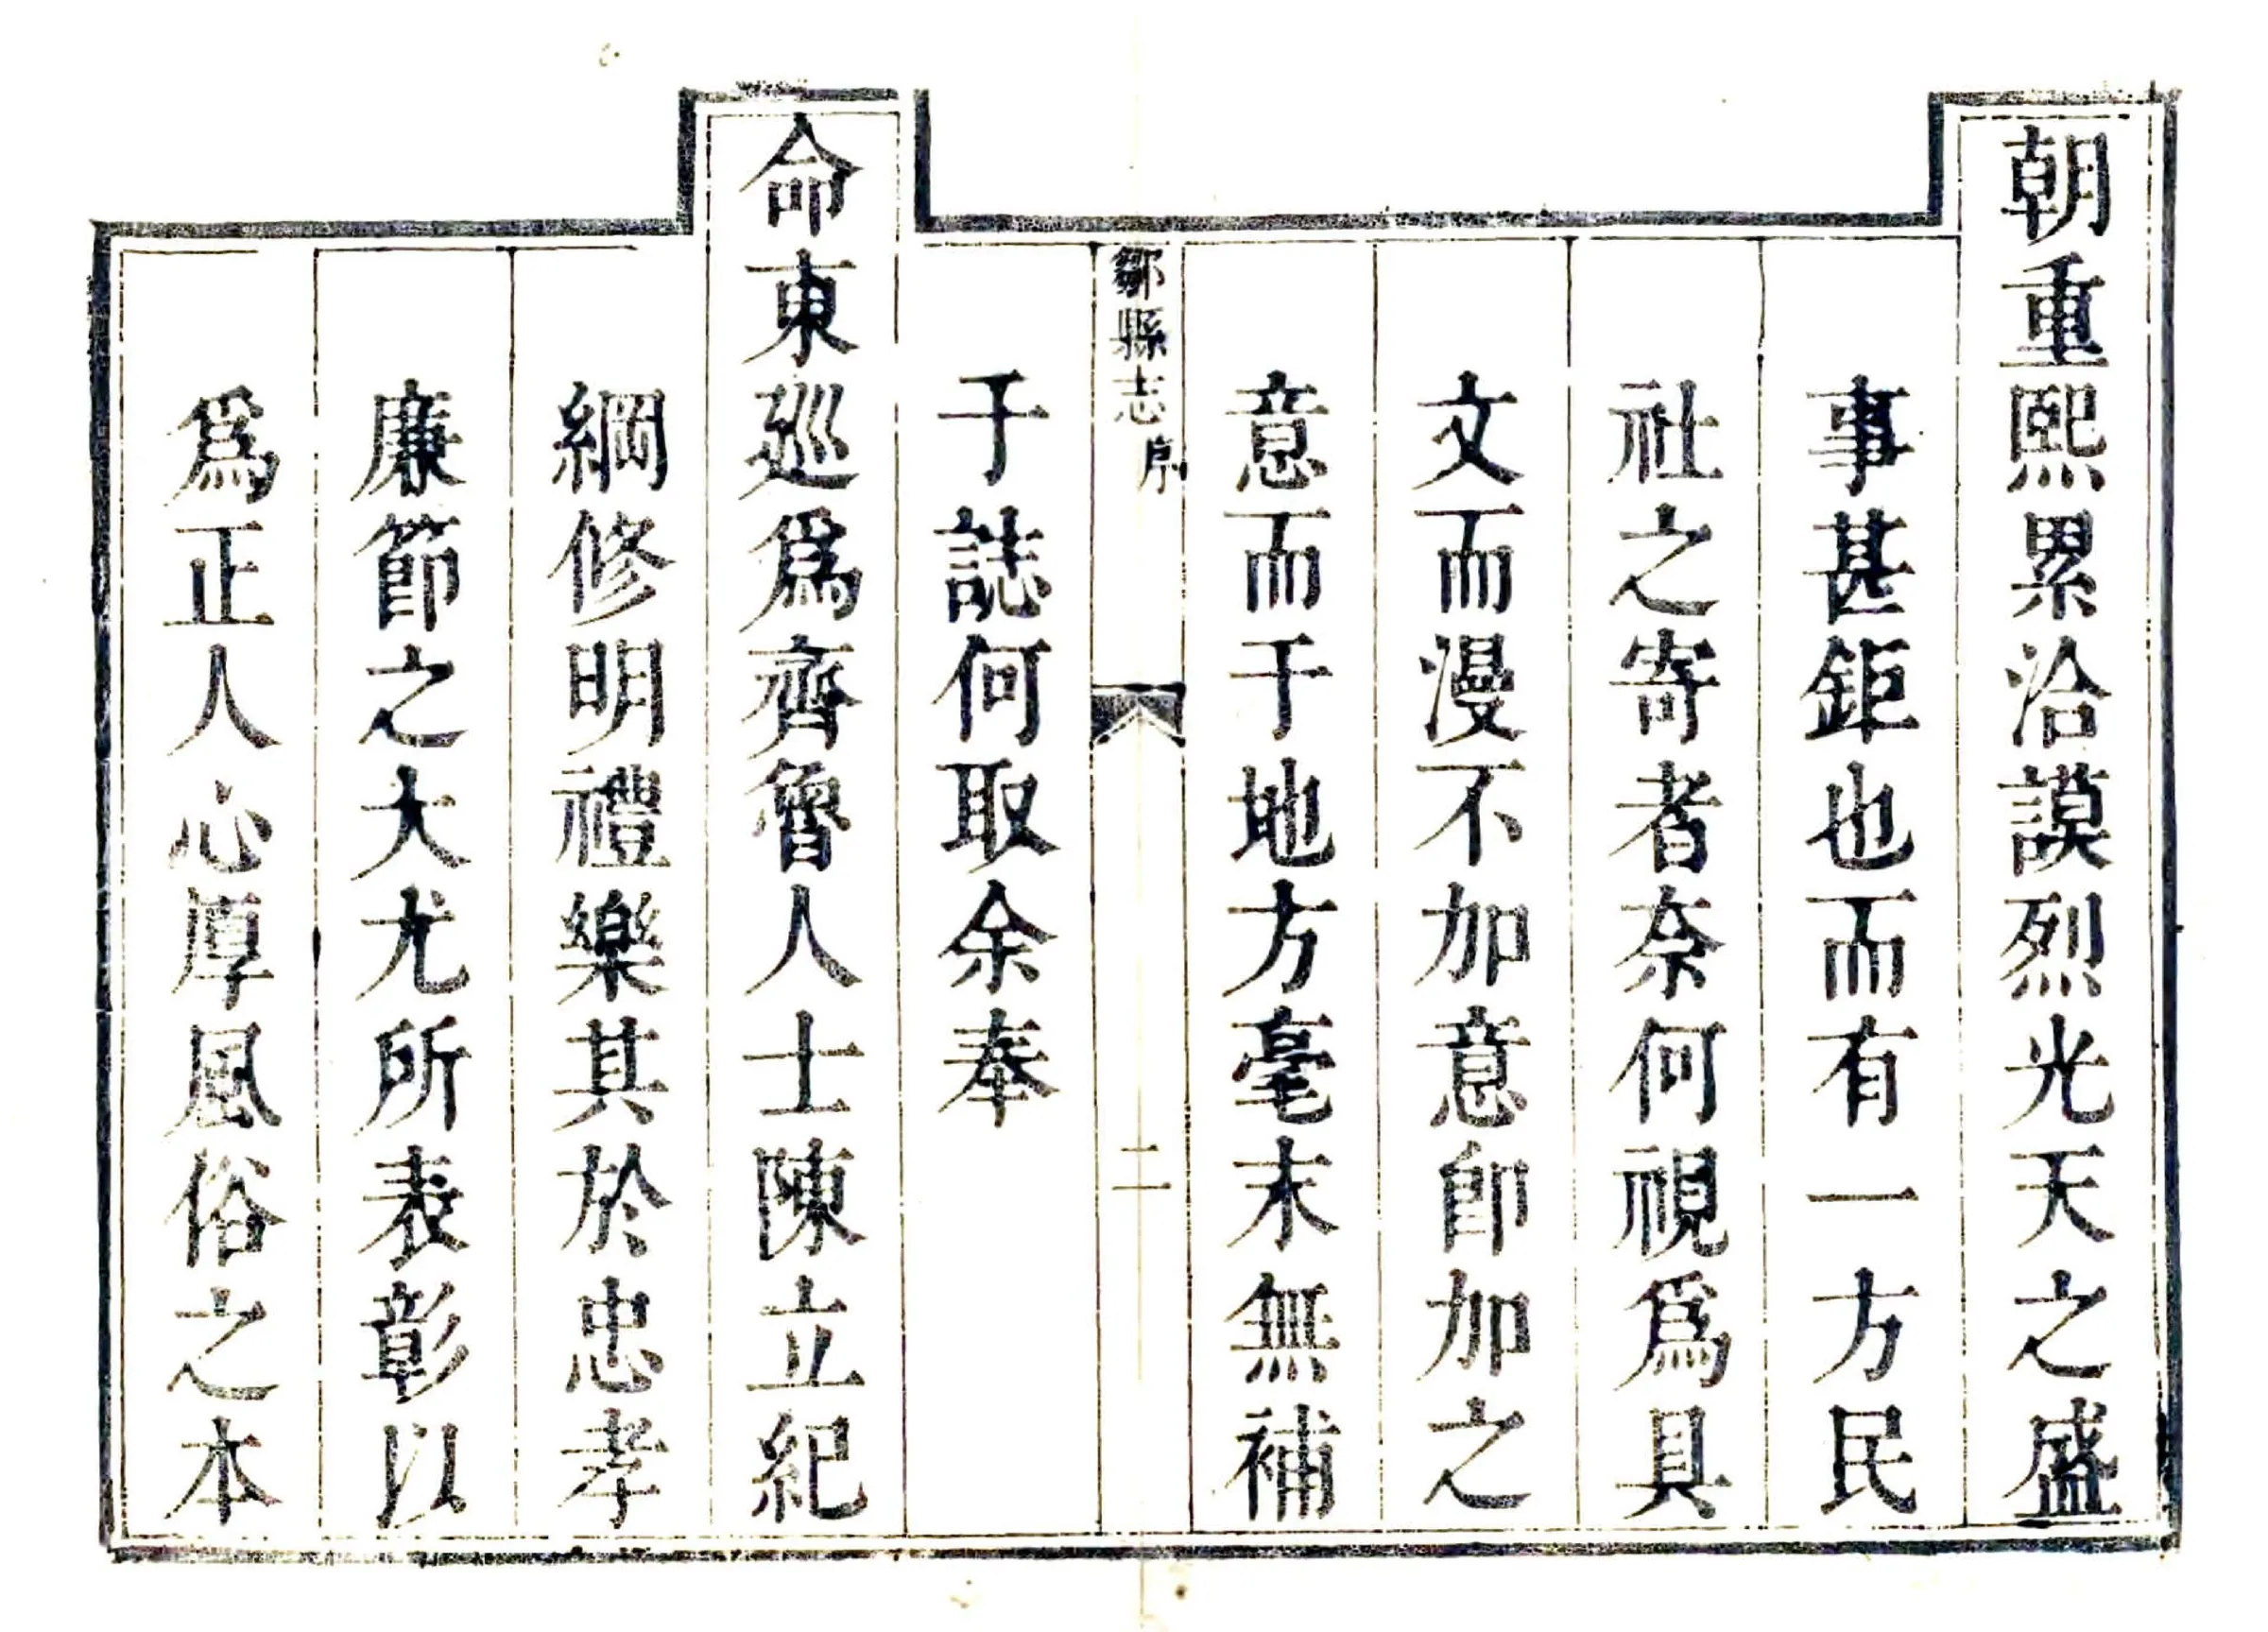 朝重熙累洽謨烈光天之盛
事甚鉅也而有一方民
社之寄者奈何視爲具
文而漫不加意卽加之
意而于地方毫末無補
鄒縣志
序
二
于誌何取余奉
命東巡爲齊魯人士陳立紀
綱修明禮樂其於忠孝
廉節之大尤所表彰以
爲正人心厚風俗之本